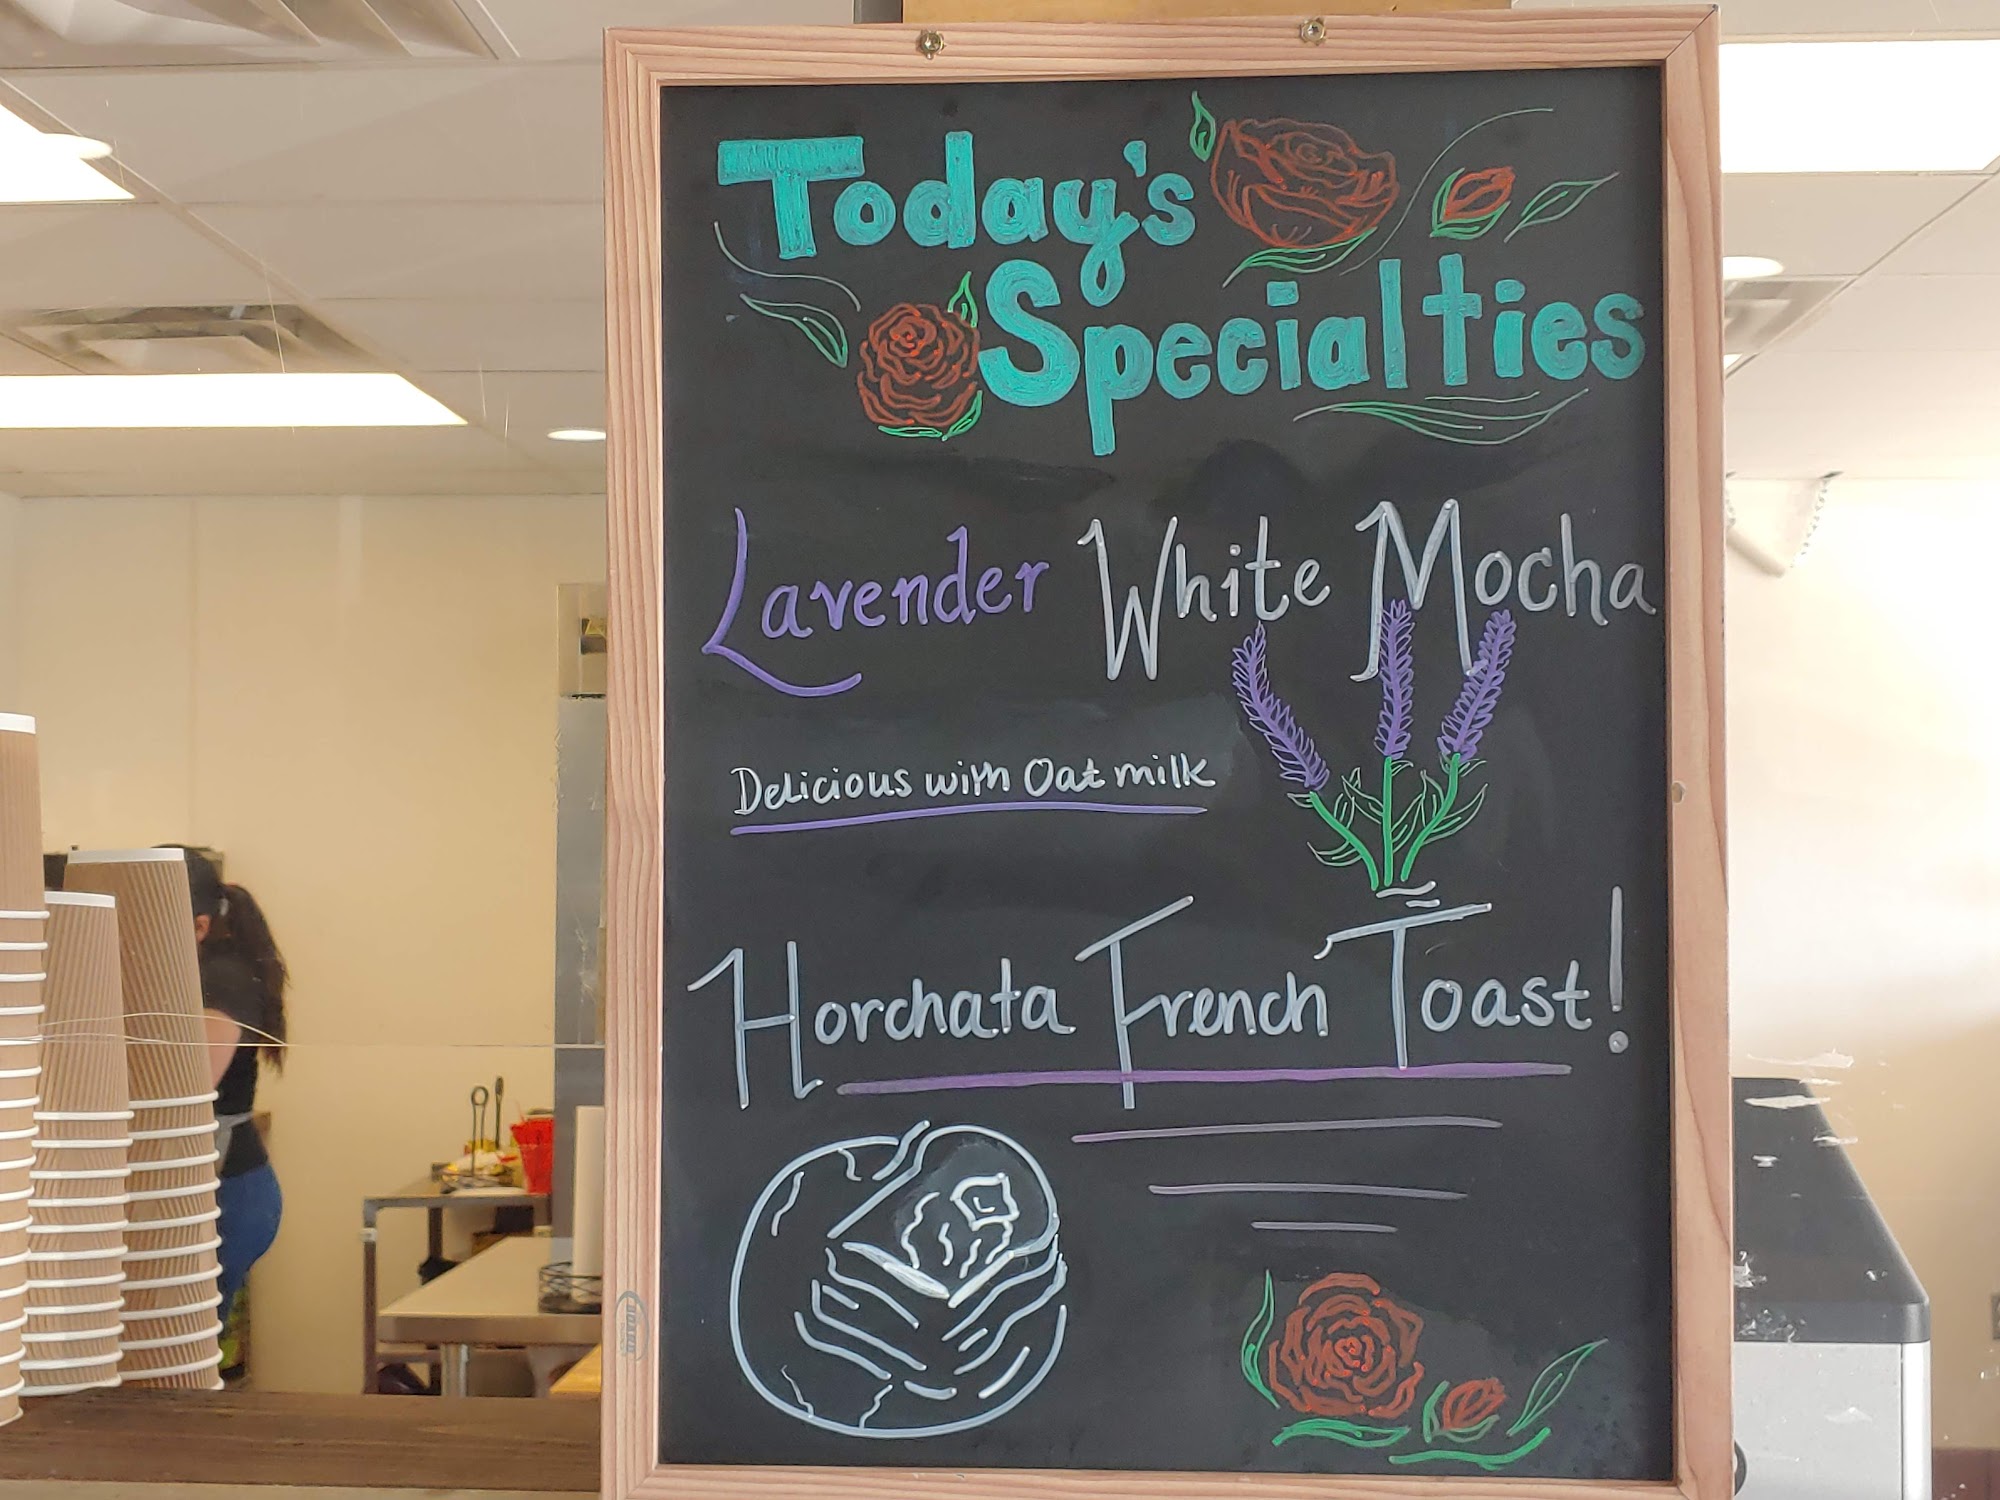 Today's
Specialties
Lavender White Mocha
Delicious with Oat milk
Horchata French Toast!